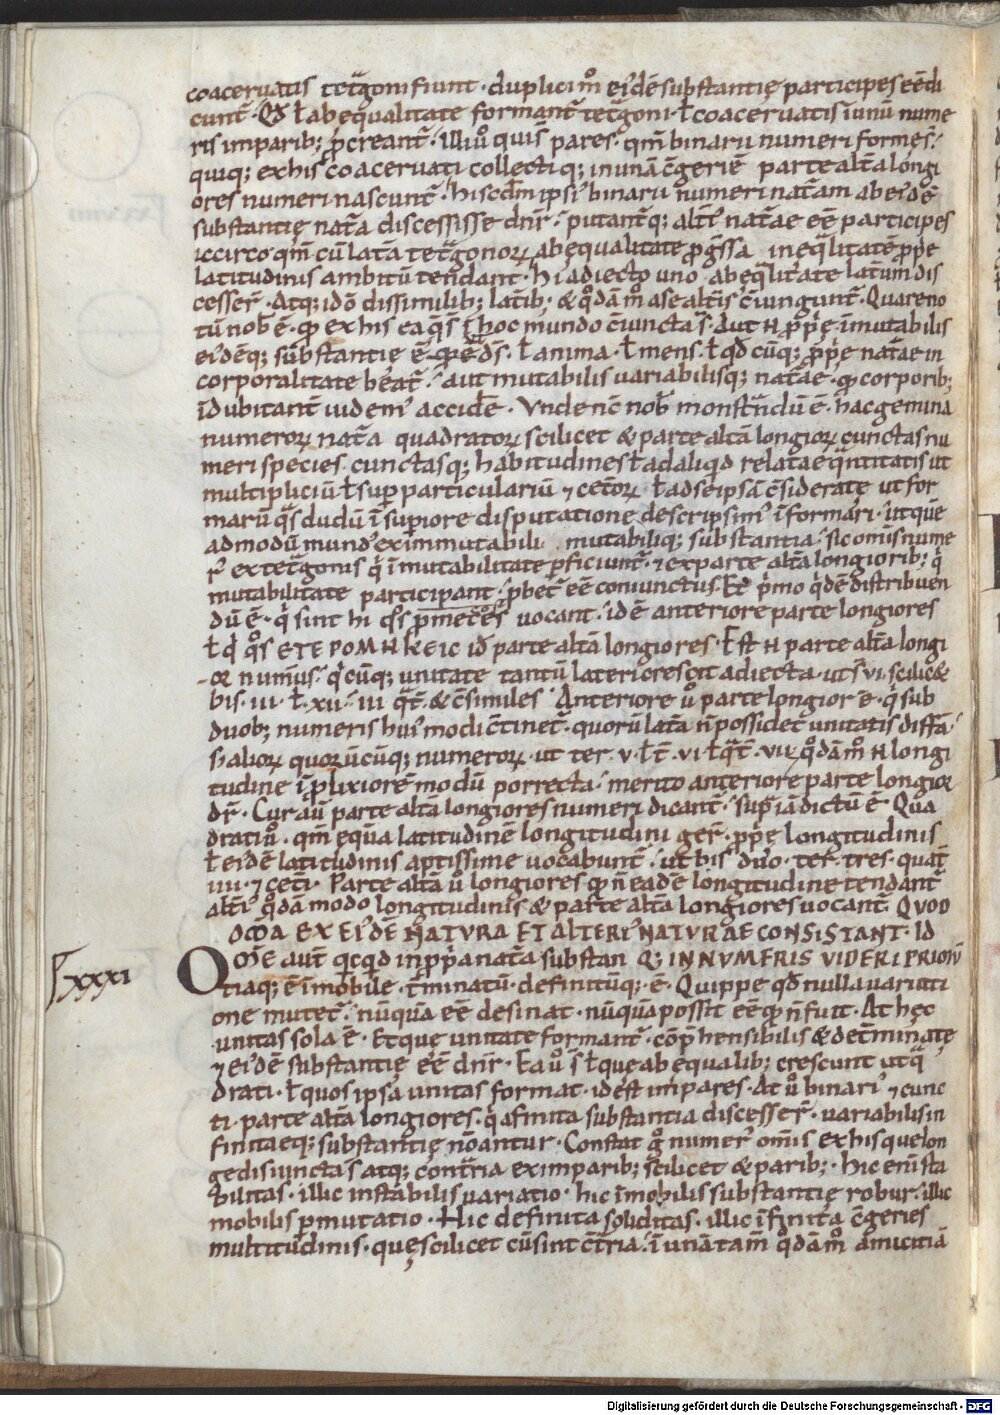 coaceruatis tet̄goni fiunt · duplici m̊ ei᷒dē substantię participes eē di
cunt̄ · Qđ ł ab equalitate formant̄ tet̄goni · ł coaceruatis ī unū nume
ris imparib; p̱creant̄ · Illi ů quis pares · qm̄ binarii numeri formę s̄ ·
quiq; ex his coaceruati collectiq; in unā c̄geriē parte alt̄a longi
ores numeri nascunt̄ · hi scd̄m ipsi᷒ binarii numeri nat̄am ab ei᷒dē
substantię nat̄a discessisse dn̄r · putant̄q; alt̄i᷒ nat̄ae eē participes
iccirco qm̄ cū lat̄a tet̄gonoꝝ ab equalitate p̱g̱ssa in eq̄litatē p̱p̱e
latitudinis ambitū tendant · hi adiecto uno ab eq̄litate lat̄um dis
cesser̄ · Atq; idō dissimilib; lat̄ib; & qdā m̊ a se alt̄is c̄iungunt̄ · Quare no
tū nob̄ ē · qp ex his ea q̄ s̄ ī hoc mundo c̄iuncta s̄ · Aut H p̱p̱ę īmutabilis
ei᷒dēq; substantię ē · qp̱e d̄s · ł anima · ł mens · ł qd cūq; p̱p̱e nat̄ae in
corporalitate beat̄ · aut mutabilis uariabilisq; nat̄ae · qp corporib;
īdubitant̄ uidem᷒ accidere · Vnde nc̄ nob̄ monst̄ndū ē · hac gemina
numeroꝝ nat̄a quadratoꝝ scilicet & parte alt̄a longioꝝ cunctas nu
meri species · cunctasq; habitudines ł ad aliqd relatae q̄ntitatis ut
multipliciū · ł sup particulariū ⁊ cet̄oꝝ ł ad se ipsā c̄siderate ut for
marū q̄s dudū ī superiore disputatione descripsim᷒ īformari · ut que
admodū mund᷒ ex immutabili mutabiliq; substantia · sic om̄is nume
r᷒ ex tet̄gonis q̄ īmutabilitate p̱ficiunt̄ · ⁊ ex parte alt̄a longiorib; q̄
mutabilitate participant · p̱bet̄ eē coniunctus · Et p̱mo qdē distribuen
dū ē · q̄ sint hi q̊s p̱meceſ uocant · id ē anteriore parte longiores
ł q̄ q̊s ETEPOMHKEIC id̄ parte alt̄a longiores · Est H parte alt̄a longi
or num̄us · qcūq; unitate tantū lateri crescit adiecta · ut s̄ · vi · scilic&
bis · iii · ł · xii · iii · qt̄ · & c̄similes · Anteriore ů parte longior ē · q̄ sub
duob; numeris hui᷒modi c̄tinet̄ · quorū lat̄a n̄ possidet unitatis diffā
s; alioꝝ quorūcūq; numeroꝝ · ut ter · v · ł t̄ · vi · ł qt̄ · vii · qdā m̊ H longi
tudine ī plixiorē modū porrecta · merito anteriore parte longior
dr̄ · Cur aū parte alt̄a longiores numeri dicant̄ · sup iā dictū ē · Qua
drati ů · qm̄ eq̄ua latitudinē longitudini ger̄ · p̱p̱ę longitudinis
ł ei᷒dē latitudinis aptissime uocabunt̄ · ut bis duo · ter tres · quat̄
iiii · ⁊ cet̄i · Parte alt̄a ů longiores qp n̄ eadē longitudine tendant̄
alt̄i᷒ qdā modo longitudinis & parte alt̄a longiores uocant̄ · QVOD
OM̄A EX EI᷒DĒ NATVRA ET ALTERI᷒ NATVRAE CONSISTANT · ID
Om̄e aut̄ qcqd in p̱p̱a nat̄a substan Q; IN NVMERIS VIDERI PRIMŪ
xxxi
tiaq; ē īmobile · t̄minatū · definitūq; ē · Quippe qd nulla uariati
one mutet̄ · nūquā eē desinat · nūquā possit eē qp n̄ fuit · At hęc
unitas sola ē · Et quę unitate formant̄ · cōp̱hensibilis & det̄minate
⁊ ei᷒dē substantię eē dn̄r · Ea ů s̄ ł que ab equalib; crescunt ut q̄
drati · ł quos ipsa unitas format · id est impares · At ů binari᷒ ⁊ cunc
ti · parte alt̄a longiores · q̄ a finita substantia discesser̄ · uariabilis in
finitaeq; substantię nōantur · Constat g̊ numer᷒ om̄is ex his que lon
ge disiuncta s̄ atq; cont̄ria ex imparib; scilicet & parib; · hic eni sta
bilitas · illic instabilis uariatio · hic īmobilis substantię robur · illic
mobilis p̱mutatio · Hic definita soliditas · illic īfinita c̄geries
multitudinis · quę scilicet cū sint c̄t̄ria · ī unā tam̄ qdā m̊ amicitiā
Digitalisierung gefördert durch die Deutsche Forschungsgemeinschaft · DFG